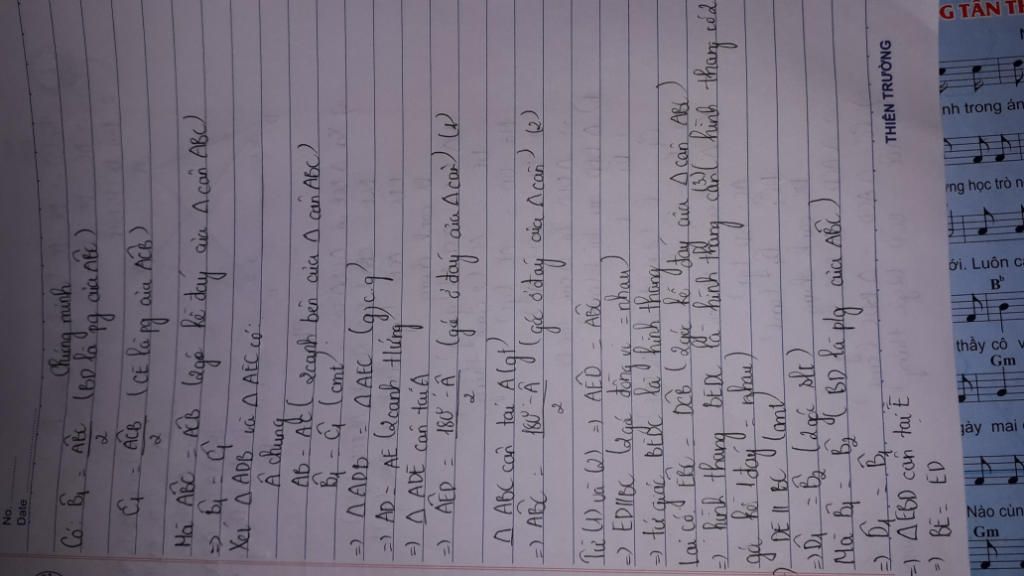 No.
Date
Chứng minh
Có: B̂₁ = AB̂C/2 (BD là pg của AB̂C)
Ĉ₁ = AĈB/2 (CE là pg của AĈB)
Mà AB̂C = AĈB (2 góc kề đáy của Δ cân ABC)
=> B̂₁ = Ĉ₁
Xét Δ ADB và Δ AEC có:
 chung
AB = AC (2 cạnh bên của Δ cân ABC)
B̂₁ = Ĉ₁ (cmt)
=> Δ ADB = Δ AEC (g.c.g)
=> AD = AE (2 cạnh tứ)
=> Δ ADE cân tại A
=> AÊD = 180° - Â/2 (góc ở đáy của Δ cân) (1)
Δ ABC cân tại A (gt)
=> AB̂C = 180° - Â/2 (góc ở đáy của Δ cân) (2)
Từ (1) và (2) => AÊD = AB̂C
=> ED//BC (2 góc đồng vị = nhau)
=> tứ giác BEDC là hình thang
Lại có EB̂C = DĈB (2 góc kề đáy của Δ cân ABC)
=> hình thang BEDC là hình thang cân (3) (hình thang có 2
góc kề 1 đáy = nhau)
DE // BC (cmt)
=> D̂₁ = B̂₂ (2 góc slt)
Mà B̂₁ = B̂₂ (BD là p/g của AB̂C)
=> D̂₁ = B̂₁
=> Δ EBD cân tại E
=> BE = ED
THIÊN TRƯỜNG
G TÂN TH
nh trong án
ng học trò n
ới. Luôn c
Bb
thầy cô v
Gm
gày mai
Nào cùn
Gm